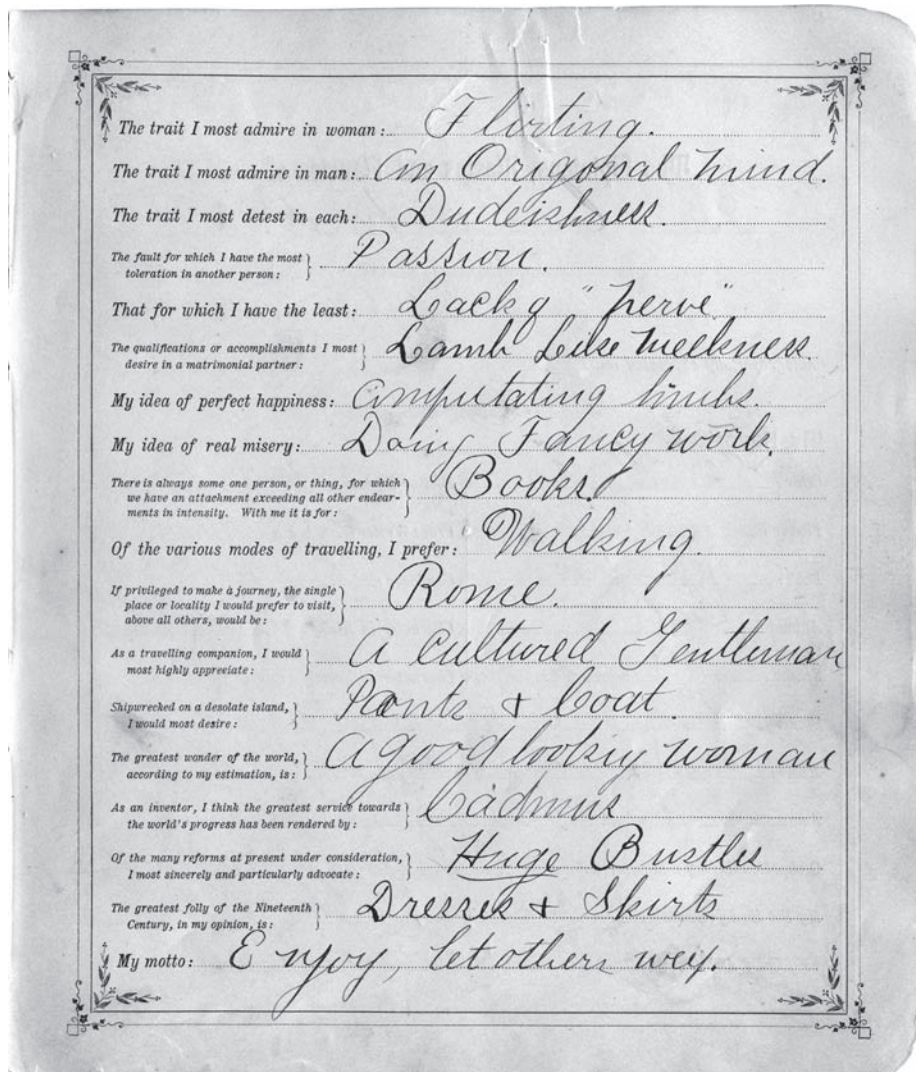 The trait I most admire in woman: Flirting.
The trait I most admire in man: An Origonal Mind.
The trait I most detest in each: Dudeishness.
The fault for which I have the most
toleration in another person: } Passion.
That for which I have the least: Lack of "nerve"
The qualifications or accomplishments I most
desire in a matrimonial partner: } Lamb Like Meekness.
My idea of perfect happiness: Amputating limbs.
My idea of real misery: Doing Fancy work.
There is always some one person, or thing, for which
we have an attachment exceeding all other endear-
ments in intensity. With me it is for: } Books.
Of the various modes of travelling, I prefer: Walking.
If privileged to make a journey, the single
place or locality I would prefer to visit,
above all others, would be: } Rome.
As a travelling companion, I would
most highly appreciate: } A cultured Gentleman
Shipwrecked on a desolate island,
I would most desire: } Pants & Coat.
The greatest wonder of the world,
according to my estimation, is: } A good looking woman
As an inventor, I think the greatest service towards
the world's progress has been rendered by: } Cadmus
Of the many reforms at present under consideration,
I most sincerely and particularly advocate: } Huge Bustles
The greatest folly of the Nineteenth
Century, in my opinion, is: } Dresses & Skirts
My motto: Enjoy, let others